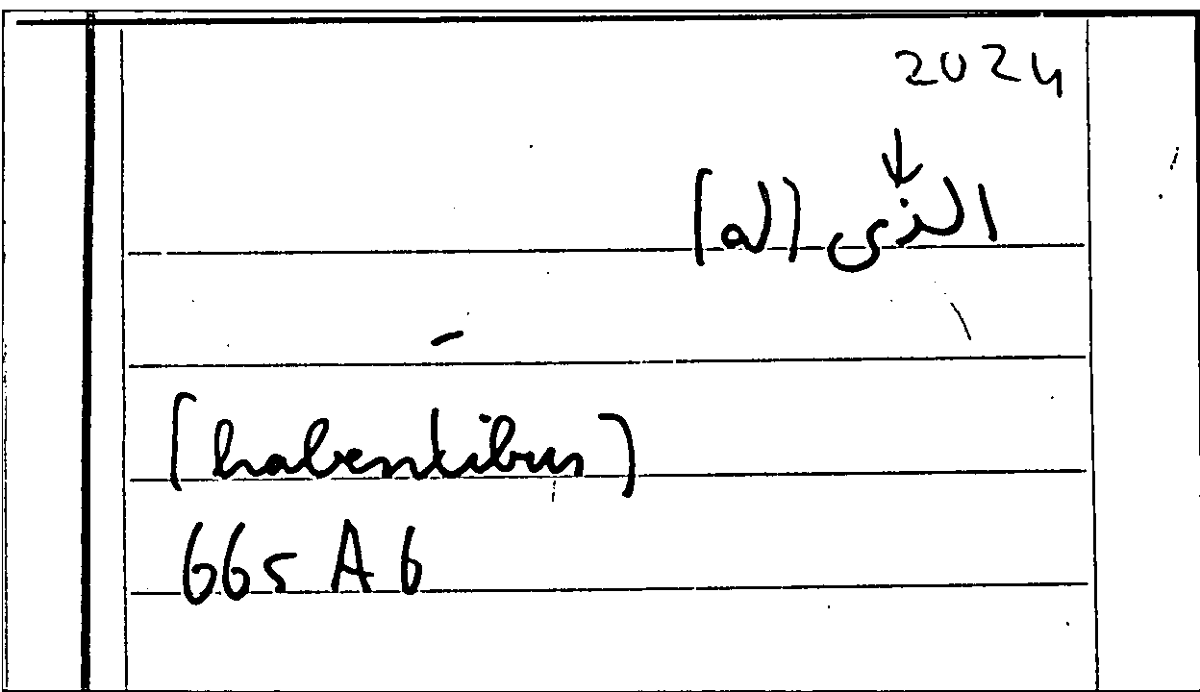 2024
↓
الذى (له)
(habentibus)
665 A 6